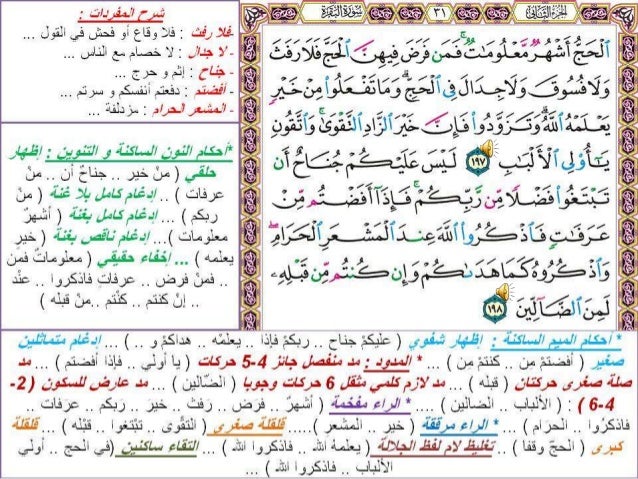 الجزء الثاني
٣١
سورة البقرة
ٱلْحَجُّ أَشْهُرٌ مَّعْلُومَٰتٌ ۚ فَمَن فَرَضَ فِيهِنَّ ٱلْحَجَّ فَلَا رَفَثَ
وَلَا فُسُوقَ وَلَا جِدَالَ فِى ٱلْحَجِّ ۗ وَمَا تَفْعَلُوا۟ مِنْ خَيْرٍ
يَعْلَمْهُ ٱللَّهُ ۗ وَتَزَوَّدُوا۟ فَإِنَّ خَيْرَ ٱلزَّادِ ٱلتَّقْوَىٰ ۚ وَٱتَّقُونِ
يَٰٓأُو۟لِى ٱلْأَلْبَٰبِ ١٩٧ لَيْسَ عَلَيْكُمْ جُنَاحٌ أَن
تَبْتَغُوا۟ فَضْلًا مِّن رَّبِّكُمْ ۚ فَإِذَآ أَفَضْتُم مِّنْ
عَرَفَٰتٍ فَٱذْكُرُوا۟ ٱللَّهَ عِندَ ٱلْمَشْعَرِ ٱلْحَرَامِ ۖ
وَٱذْكُرُوهُ كَمَا هَدَىٰكُمْ وَإِن كُنتُم مِّن قَبْلِهِۦ
لَمِنَ ٱلضَّآلِّينَ ١٩٨
شرح المفردات :
-فلا رفث : فلا وقاع أو فحش في القول ...
- لا جدال : لا خصام مع الناس ...
- جناح : إثم و حرج ...
- أفضتم : دفعتم أنفسكم و سرتم ...
- المشعر الحرام : مزدلفة ...
*أحكام النون الساكنة و التنوين : إظهار
حلقي ( منْ خير .. جناحٌ أن .. منْ
عرفات ) .. إدغام كامل بلا غنة ( منْ
ربكم ) ... إدغام كامل بغنة ( أشهرٌ
معلومات )... إدغام ناقص بغنة ( خيرٍ
يعلمه ) ... إخفاء حقيقي ( معلوماتٌ فمن
.. فمنْ فرض .. عرفاتٍ فاذكروا .. عنْد
.. إنْ كنتم .. كنْتم ..منْ قبله )
* أحكام الميم الساكنة : إظهار شفوي ( عليكمْ جناح .. ربكمْ فإذا .. يعلمْه .. هداكمْ و .. ) ... إدغام متماثلين
صغير ( أفضتمْ مِن .. كنتمْ مِن ) ... * المدود : مد منفصل جائز 4-5 حركات ( يا أولي .. فإذا أفضتم ) ... مد
صلة صغرى حركتان ( قبله ) ... مد لازم كلمي مثقل 6 حركات وجوبا ( الضّالين ) ... مد عارض للسكون ( 2-
4-6 ) : ( الألباب .. الضالين ) * الراء مفخمة ( أشهرٌ .. فرَض .. رفث .. خير .. ربكم .. عرَفات
فاذكرُوا .. الحرَام ) ... * الراء مرققة ( خير .. المشعر )..... قلقلة صغرى ( التقْوى .. تبْتغوا .. قبْله ) ... قلقلة
كبرى ( الحجّ وقفا ) .. تغليظ لام لفظ الجلالة ( يعلمهُ الله .. فاذكروا الله ) ... التقاء ساكنين (في الحج .. أولي
الألباب .. فاذكروا الله ) ...